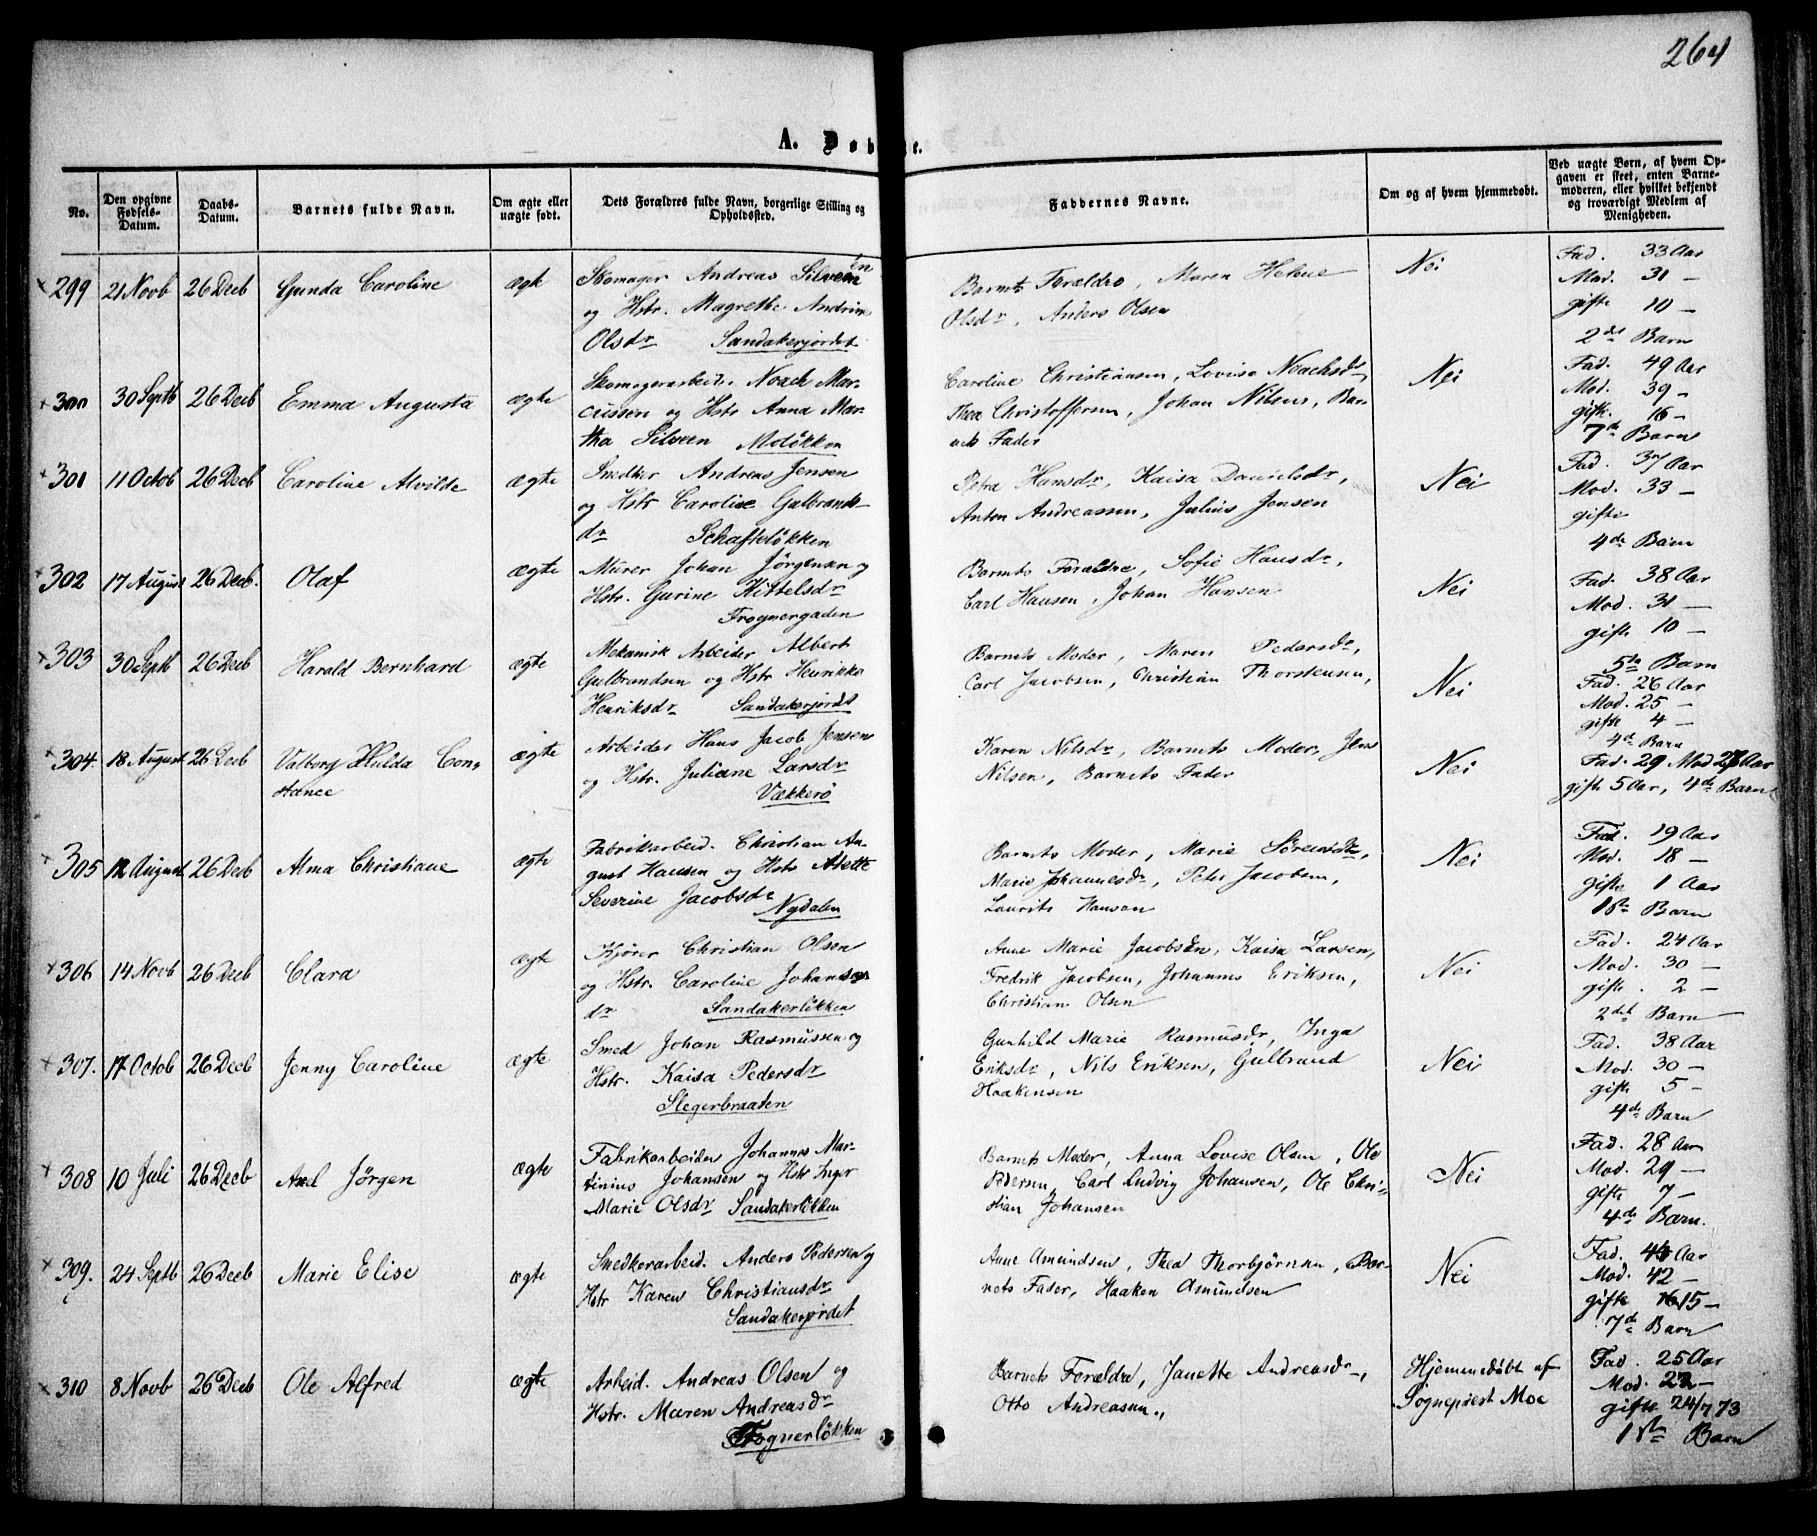 264
A. Døbte.
No.
Den opgivne Fødsels-Datum.
Daabs-Datum.
Barnets fulde Navn.
Om ægte eller uægte født.
Dets Forældres fulde Navn, borgerlige Stilling og Opholdssted.
Faddernes Navne.
Om og af hvem hjemmedøbt.
Ved uægte Børn, af hvem Opgaven er skeet, enten Barnemoderen, eller hvilket bekjendt og troværdigt Medlem af Menigheden.
299 21 Novb 26 Decb Gunda Caroline ægte
Skomager Andreas Silveen
og Hstr. Magrethe Andrine
Olsdr Sandakerjordet
Barnets Forældre, Maren Helene
Olsdr, Anders Olsen
Nei
Fad. 33 Aar
Mod. 31 —
gifte 10 —
2det Barn
300 30 Septb 26 Decb Emma Augusta ægte
Skomagerarbeider Noach Mar-
cussen og Hstr Anna Mar-
tha Silveen Moløkken
Caroline Christiansen, Lovise Noachsdr,
Thea Christoffersen, Johan Nilsen, Bar-
nets Fader
Nei
Fad. 49 Aar
Mod. 39 —
gifte 16 —
7de Barn
301 11 Octob 26 Decb Caroline Alvilde ægte
Snedker Andreas Jensen
og Hstr Caroline Gulbrands-
dr Schafteløkken
Petra Hansdr, Kaisa Danielsdr,
Anton Andreassen, Julius Jensen
Nei
Fad. 37 Aar
Mod. 33 —
gifte
4de Barn
302 17 August 26 Decb. Olaf ægte
Murer Johan Jørgensen og
Hstr. Gurine Kittelsdr
Frognergaden
Barnets Forældre, Sofie Hansdr,
Carl Hansen, Johan Hansen
Nei
Fad. 38 Aar
Mod. 31 —
gifte 10 —
5te Barn
303 30 Septb 26 Decb Harald Bernhard ægte
Mekanisk Arbeider Albert
Gulbrandsen og Hstr Henrikke
Henriksdr Sandakerjordet
Barnets Moder, Maren Pedersdr,
Carl Jacobsen, Christian Thorstensen,
Nei
Fad. 26 Aar
Mod. 25 —
gifte 4 —
4de Barn
304. 18 August 26 Decb Valborg Hulda Con-
stance
ægte
Arbeider Hans Jacob Jensen
og Hstr. Juliane Larsdr
Vækkerø
Karen Nilsdr, Barnets Moder, Jens
Nilsen, Barnets Fader
Nei
Fad. 29 Mod 27 Aar
gifte 5 Aar, 4de Barn
305 12 August 26 Decb Alma Christiane ægte
Fabrikarbeid. Christian Au-
gust Hansen og Hstr Anette
Severine Jacobsdr Nydalen
Barnets Moder, Marie Sørensdr,
Marie Johannesdr, Peter Jacobsen,
Laurits Hansen
Nei
Fad. 19 Aar
Mod. 18 —
gifte 1 Aar
1ste Barn
306 14 Novb 26 Decb Clara ægte
Kjører Christian Olsen
og Hstr. Caroline Johannes-
dr Sandakerløkken
Anne Marie Jacobsdr, Kaisa Larsen,
Fredrik Jacobsen, Johannes Eriksen,
Christian Olsen
Nei
Fad. 24 Aar
Mod. 30 —
gifte. 2 —
2det Barn
307. 17 Octob 26 Decb Jenny Caroline ægte
Smed Johan Rasmussen og
Hstr. Kaisa Pedersdr
Slegerbraaten
Gunhild Marie Rasmusdr, Inga
Eriksdr, Nils Eriksen, Gulbrand
Haakensen
Nei
Fad. 38 Aar
Mod. 30 —
gifte 5 —
4de Barn
308 10 Juli 26 Decb Axel Jørgen ægte
Fabrikarbeider Johannes Mar-
tinius Johansen og Hstr Inger
Marie Olsdr Sandakerløkken
Barnets Moder, Anna Lovise Olsen, Ole
Pedersen, Carl Ludvig Johansen, Ole Chri-
stian Johansen
Nei
Fad. 28 Aar
Mod. 29 —
gifte 7 —
4de Barn.
309. 24 Septb 26 Decb Marie Elise ægte
Snedkerarbeid. Anders Pedersen og
Hstr Karen Christiansdr
Sandakerjordet
Anne Amundsen, Thea Thorbjørnsen, Bar-
nets Fader, Haaken Amundsen
Nei
Fad. Aar
Mod. 42 —
gifte 15 —
7de Barn
310 8 Novb 26 Decb Ole Alfred ægte
Arbeid. Andreas Olsen og
Hstr. Maren Andreasdr
Frognerløkken
Barnets Forældre, Janette Andreasdr,
Otto Andreasen.,
Hjemmedøbt af
Sognepræst Moe
Fad. 25 Aar
Mod. 22 —
gifte 24/7 73
1ste Barn